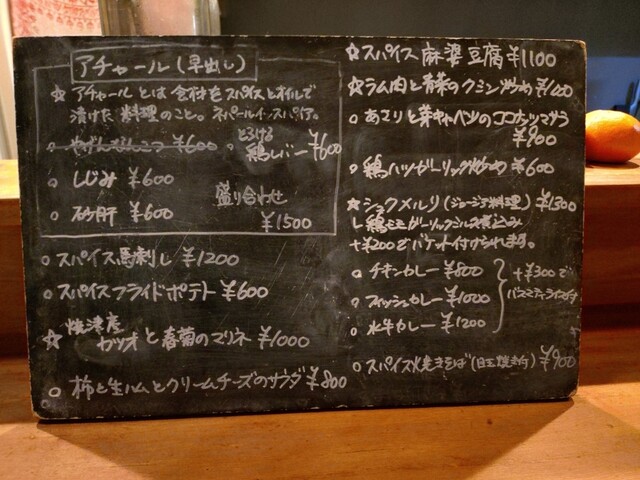 アチャール(早出し)
☆ アチャールとは食材をスパイスとオイルで
漬けた料理のこと。ネパールインスパイア。
。やげんなんこつ ¥600
。とろける
鶏レバー ¥600
。しじみ ¥600
。砂肝 ¥600
盛り合わせ
¥1500
。スパイス馬刺し ¥1200
。スパイスフライドポテト ¥600
☆ 焼津産
カツオと春菊のマリネ ¥1000
。柿と生ハムとクリームチーズのサラダ ¥800
☆スパイス麻婆豆腐 ¥1100
☆ラム肉と青菜のクミン炒め
。あさりと芽キャベツのココナッツマサラ
¥900
。鶏ハツガーリック炒め ¥600
☆シュクメルリ(ジョージア料理) ¥1300
└鶏モモガーリックミルク煮込み
+¥200でバケット付けられます。
。チキンカレー ¥800
。フィッシュカレー ¥1000
。水牛カレー ¥1200
+¥300で
バスマティライス付
。スパイス焼きそば(目玉焼き付) ¥900